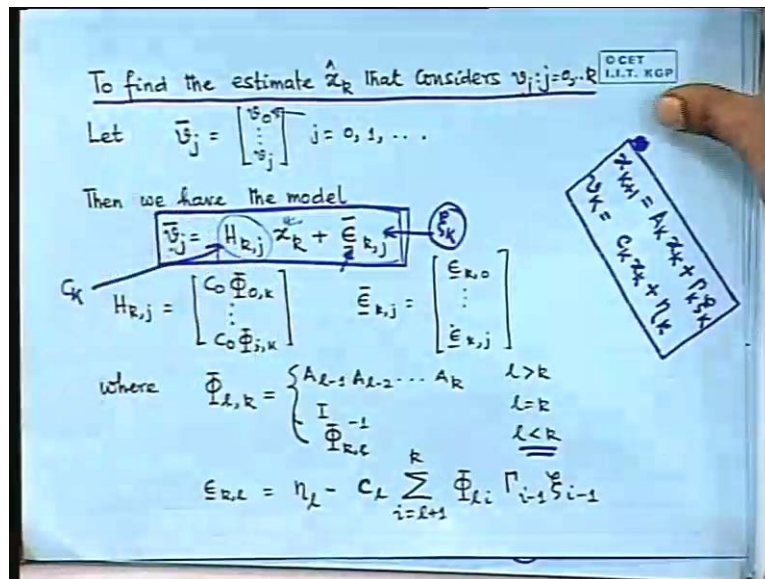 To find the estimate x̂_k that Considers v_j : j=0,..k
© CET
I.I.T. KGP
Let v̄_j = [v_0 ⋮ v_j] j = 0, 1, ...
Then we have the model
v̄_j = H_{k,j} x_k + ε̄_{k,j}
ξ_k
C_k
x_{k+1} = A_k x_k + Γ_k ξ_k
v_k = C_k x_k + η_k
H_{k,j} = [C_0 Φ_{0,k} ⋮ C_0 Φ_{j,k}] ε̄_{k,j} = [ε_{k,0} ⋮ ε_{k,j}]
where Φ_{l,k} = { A_{l-1} A_{l-2} ... A_k l>k
I l=k
Φ_{k,l}^{-1} l<k
ε_{k,l} = η_l - C_l Σ_{i=l+1}^{k} Φ_{li} Γ_{i-1} ξ_{i-1}